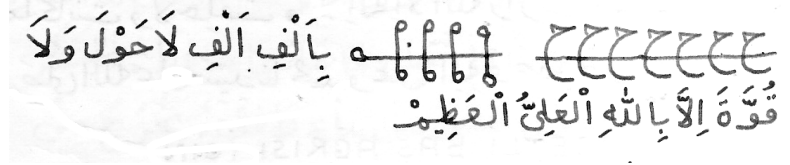 ححححححح و و و و ه بِاَلْفِ اَلْفِ لَا حَوْلَ وَلَا
قُوَّةَ اِلَّا بِاللهِ الْعَلِيُّ الْعَظِيْمْ